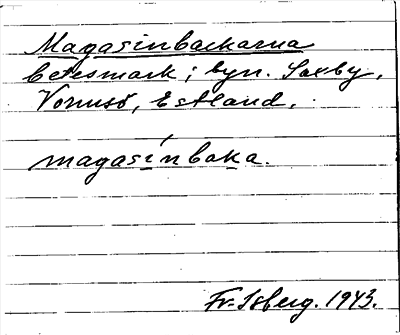 Magasinbackarna
betesmark i byn. Saxby,
Vormsö, Estland.
magasínbaka.
Fr. Isberg. 1943.